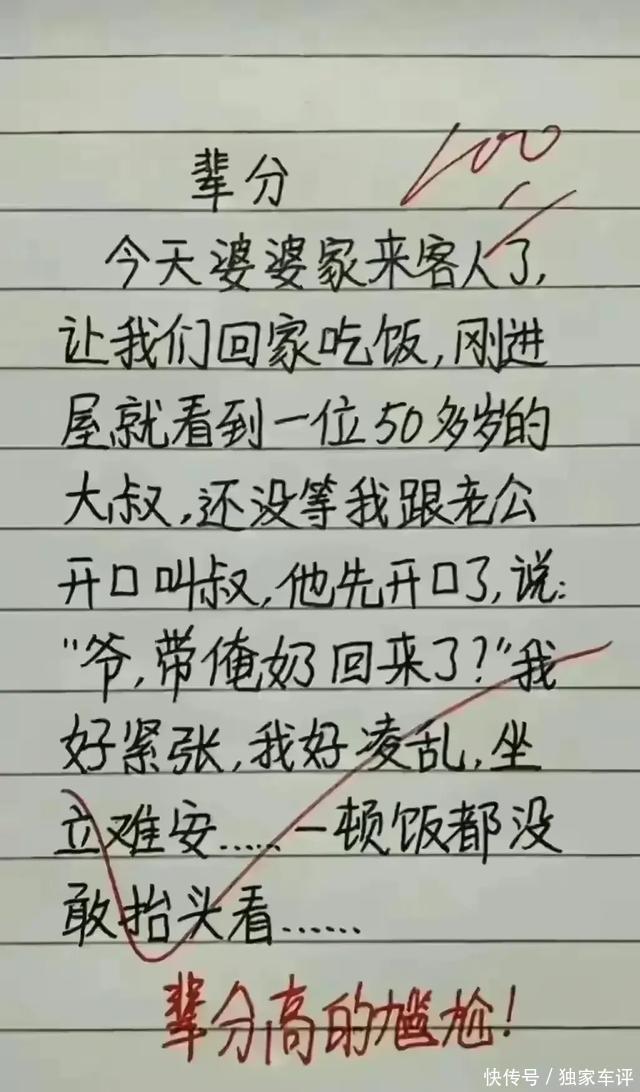 辈分
100
今天婆婆家来客人了,
让我们回家吃饭,刚进
屋就看到一位50多岁的
大叔,还没等我跟老公
开口叫叔,他先开口了,说:
"爷,带俺奶回来了?"我
好紧张,我好凌乱,坐
立难安......一顿饭都没
敢抬头看......
辈分高的尴尬!
快传号/独家车评